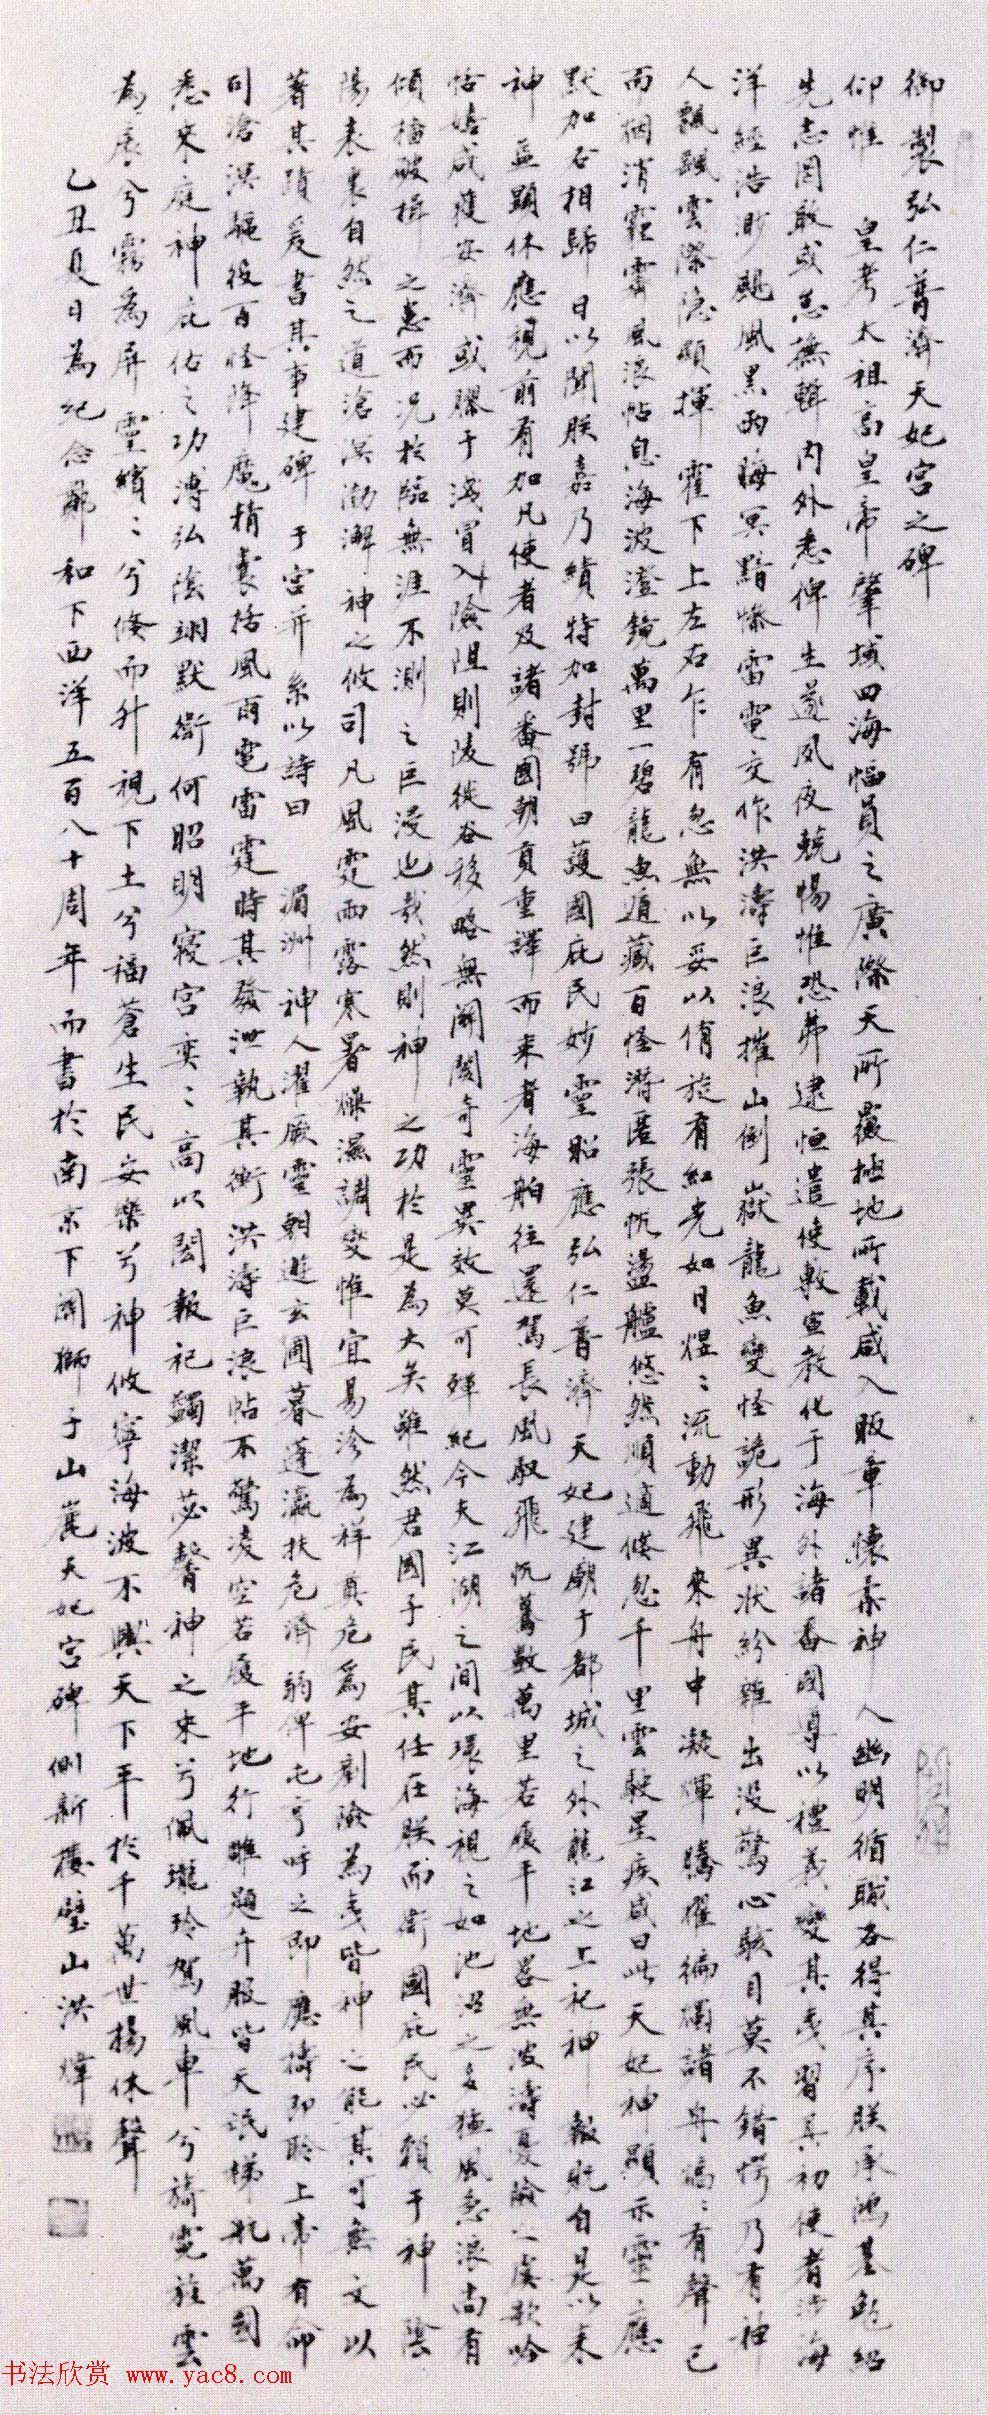 御製弘仁普濟天妃宮之碑
仰惟 皇考太祖高皇帝 肇域四海幅員之廣際天所覆極地所載咸入版章懷柔神 人幽明循職各得其序朕承鴻基勉紹
先志罔敢或怠撫輯內外悉俾生遂夙夜兢惕惟恐弗逮恒遣使敷宣教化于海外諸番國導以禮義變其夷習其初使者涉海
洋經浩渺颶風黑雨晦冥黯慘雷電交作洪濤巨浪摧山倒嶽龍魚變怪詭形異狀紛雜出沒驚心駭目莫不錯愕乃有神
人飄飄雲際隐顯揮 霍下上左右乍有忽無以妥以侑旋有紅光如日煜ミ流動飛來舟中凝輝騰耀徧燭諸舟熇ミ有聲已
而烟消霾霽風浪帖息海波澄鏡萬里一碧龍魚遁藏百怪潛匿張帆盪艫悠然順適倏忽千里雲駛星疾咸曰此天妃神顯示靈應
默加佑相歸 日以聞朕嘉乃績特加封號曰護國庇民妙靈昭應弘仁普濟天妃建廟于都城之外龍江之上祀神 報貺自是以來
神 益顯休應視前有加凡使者及諸番國朝貢重譯而來者海舶往還駕長風馭飛帆驀數萬里若履平地略無波濤憂險之虞歌吟
恬嬉咸獲安濟或膠于淺冒入險阻則陵徙谷移略無關閡奇靈異效莫可殫紀今夫江湖之間以環海視之如池沼之多猛風急浪尚有
傾檣破楫 之患而況於臨無涯不測之巨浸也哉然則神 之功於是為大矣雖然君國子民其任在朕而衛國庇民必賴于神 陰
陽表裏自然之道滄溟渤澥 神之攸司凡風雲雨露寒暑燥濕調燮惟宜易沴為祥奠危為安剗險為夷皆神之能其可無文以
著其蹟爰書其事建碑于宮并系以詩曰 湄洲神人濯厥靈朝遊玄圃暮蓬瀛扶危濟弱俾屯亨呼之即應禱即聆上帝有命
司滄溟驅役百怪降魔精囊括風雨電雷霆時其發泄執其衡洪濤巨浪帖不驚凌空若履平地行雕題卉服皆天氓梯航萬國
悉來庭神庇佑之功溥弘陰翊默衛何昭明寢宮奕ミ高以閎報祀蠲潔苾馨神之來兮佩瓏玲駕風車兮旖霓旌雲
為扆兮霧為屏靈繽ミ兮倏而升視下土兮福蒼生民安樂兮神攸寧海波不興天下平於千萬世揚休聲
乙丑夏日為紀念鄭和下西洋五百八十周年而書於南京下關獅子山麓天妃宮碑側新樓璧山洪煒
书法欣赏 www.yac8.com